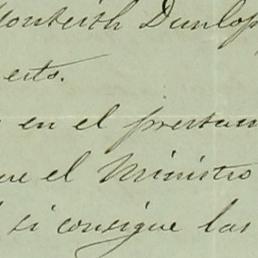 Monteith Dunlop
esto.
en el prestam
ue el Ministro
si consigue las